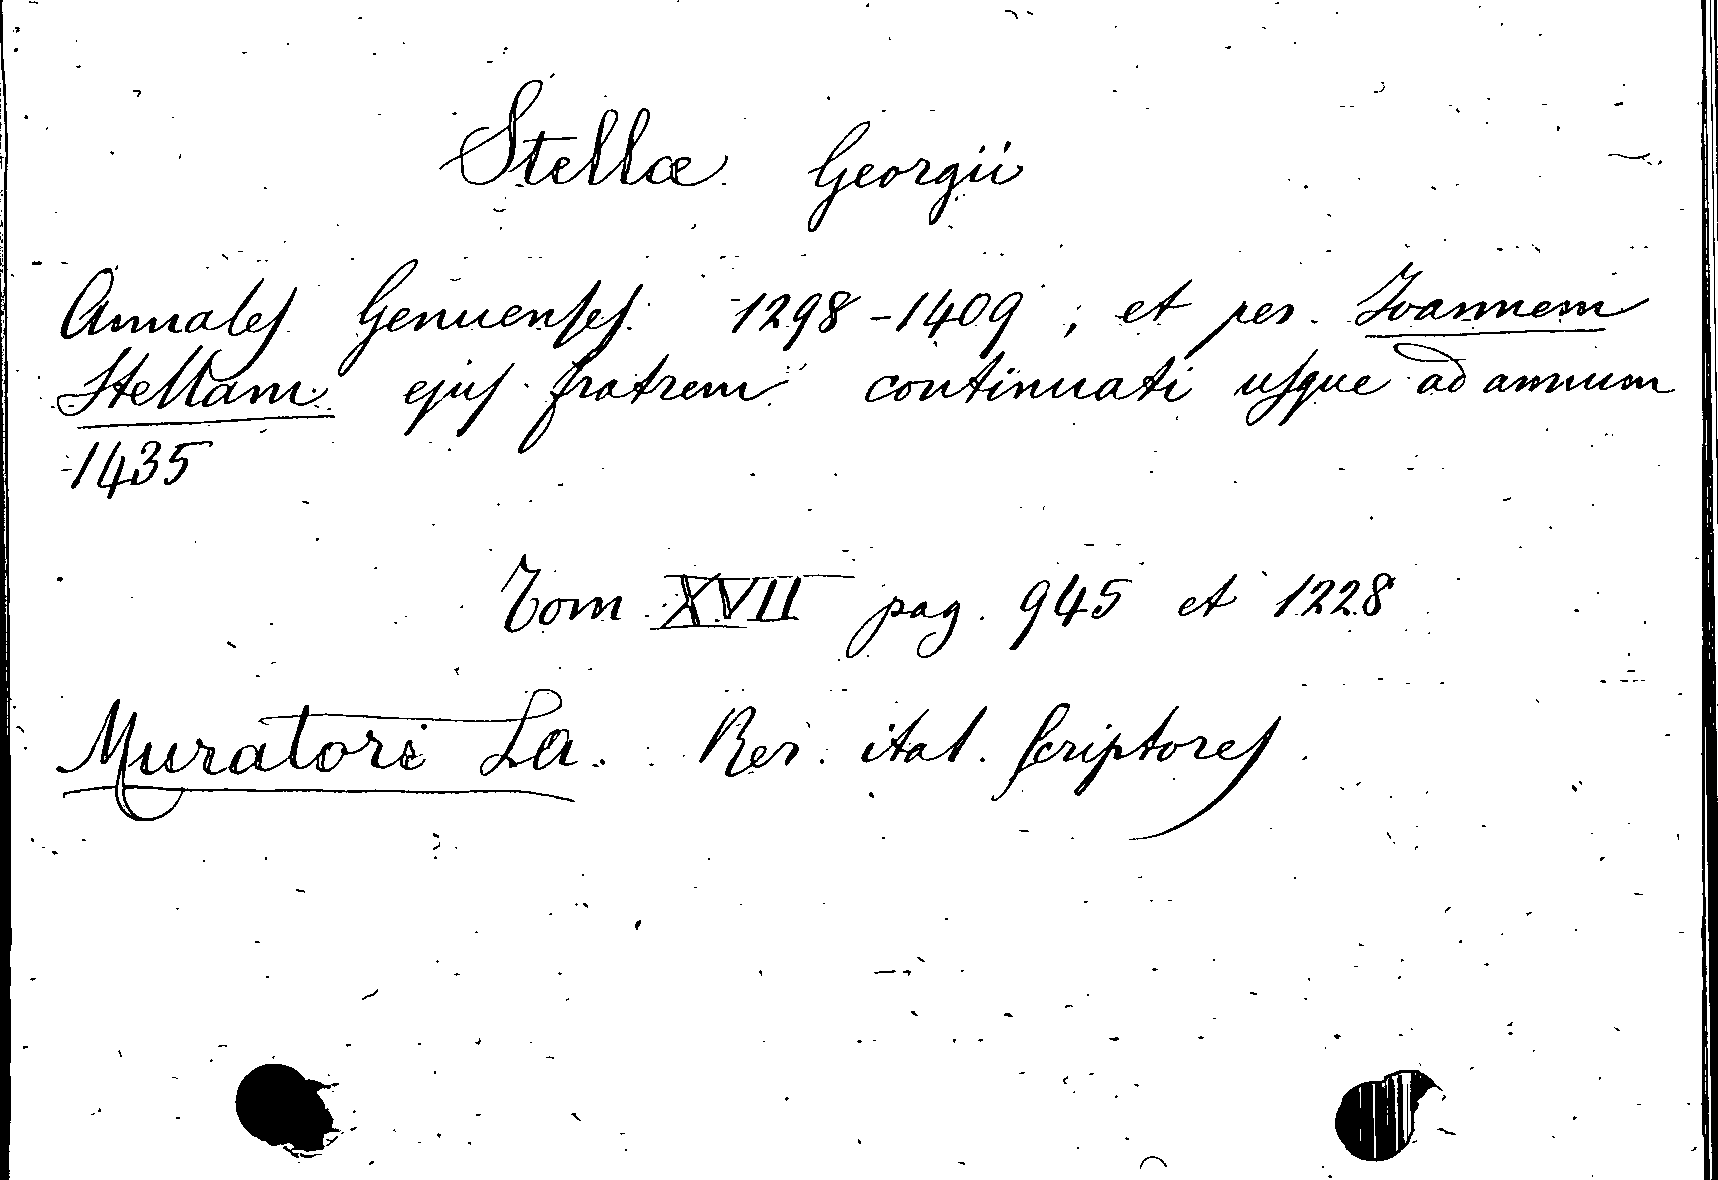 Stellæ Georgii
Annales Genuenses 1298-1409 ; et per Ioannem
Stellam ejus fratrem continuati usque ad annum
1435
Tom XVII pag. 945 et 1228
Muratori La. Rer. ital. Scriptores